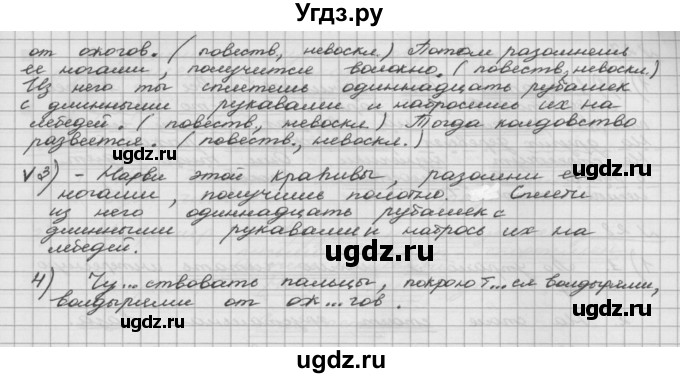 Угдз.ру
от ожогов. (повеств, невоскл.) Потом разомнешь
ее ногами, получится волокно. (повеств, невоскл.)
Из него ты сплетешь одиннадцать рубашек
с длинными рукавами и набросишь их на
лебедей. (повеств, невоскл) Тогда колдовство
развеется. (повеств., невоскл.)
V 3) - Нарви этой крапивы, разомни её
ногами, получишь полотно. Сплети
из него одиннадцать рубашек с
длинными рукавами и набрось их на
лебедей.
4) Чу...ствовать пальцы, покроют...ся волдырями,
волдырями от ож...гов.
ugdz.ru ugdz.ru ugdz.ru
ugdz.ru ugdz.ru
ugdz.ru ugdz.ru ugdz.ru
ugdz.ru